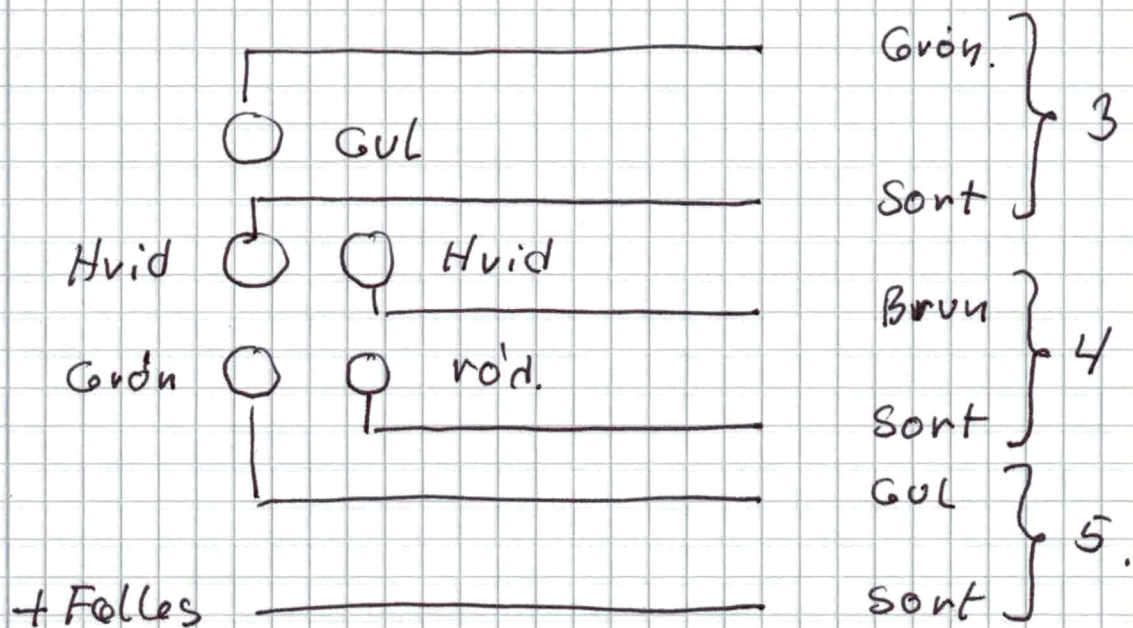 Grön.
Gul
3
Sort
Hvid Hvid
Brun
4
Grön röd.
Sort
Gul
5.
+ Fælles Sort